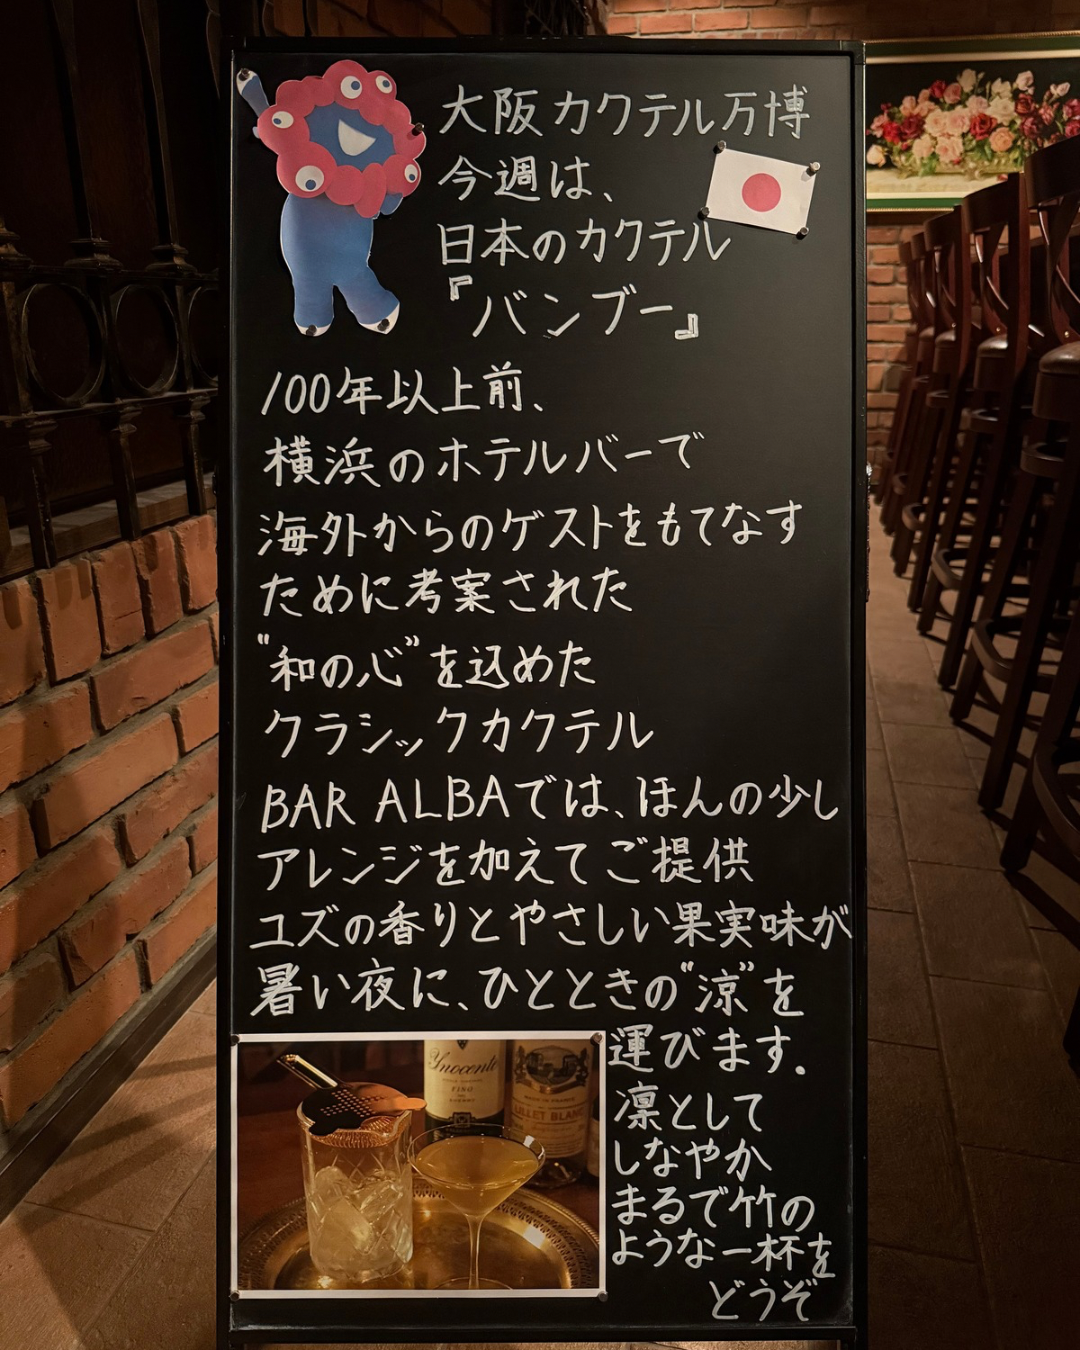 大阪カクテル万博
今週は、
日本のカクテル
『バンブー』
100年以上前、
横浜のホテルバーで
海外からのゲストをもてなす
ために考案された
"和の心"を込めた
クラシックカクテル
BAR ALBAでは、ほんの少し
アレンジを加えてご提供
ユズの香りとやさしい果実味が
暑い夜に、ひとときの"涼"を
運びます.
凛として
しなやか
まるで竹の
ような一杯を
どうぞ
Ynocente
FINO
LILLET BLANC